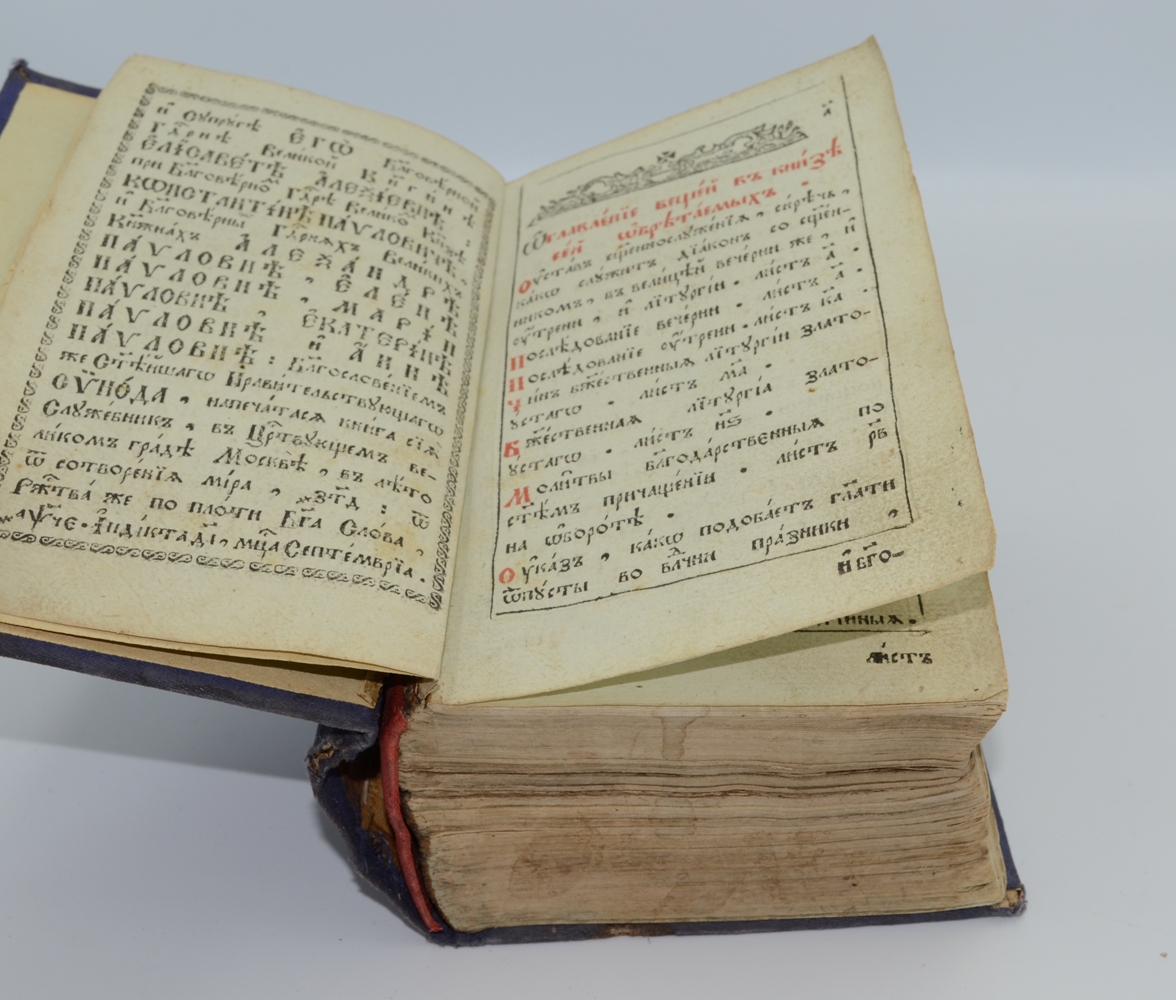 и҆ Сꙋпрꙋгѣ Є҆ГѠ̀ Бл҃говѣрной
Гдⷭ҇рнѣ Великой Кнѧгинѣ
Є҆ЛІСАВЕ́ТѢ А҆ЛЕѮІ́ЕВНѢ,
при Бл҃говѣрно́ Гдⷭ҇рѣ Велико́ Кнѧзѣ
КѠНСТАНТІ́НѢ ПА́ѴЛОВИЧѢ,
и҆ Бл҃говѣ́рны Гдⷭ҇рнѧхъ Великихъ
Кнѧжна́хъ А҆ЛЕѮА́НДРѢ
ПА́ѴЛОВНѢ, Є҆ЛЕ́НѢ
ПА́ѴЛОВНѢ, МАРІ́И
ПА́ѴЛОВНѢ, Є҆КАТЕРІ́НѢ
ПА́ѴЛОВНѢ и҆ А҆́ННѢ
ПА́ѴЛОВНѢ: Бл҃гословенїемъ
же Ст҃ѣ́йшагѡ Правительствꙋющагѡ
СѴНО́ДА, напеча́тасѧ книга сїѧ̀
Слꙋже́бникъ, въ Црⷭ҇твꙋющемъ ве-
ликомъ гра́дѣ Москвѣ̀, въ лѣ́то
ѿ сотворе́нїѧ мі́ра, ҂зт҃д: ѿ
Ржⷭ҇тва́ же по пло́ти Бг҃а Сло́ва,
҂аѱч҃е. І҆ндїкта д҃і, мцⷭ҇а Септе́мврїа.
а҃
Ѡ҆главле́нїе веще́й въ кни́зѣ
се́й ѡ҆брѣта́емыхъ.
Оу҆ста́въ сщ҃еннослꙋже́нїѧ, си́рѣчь,
ка́кѡ слꙋ́житъ дїа́конъ со сщ҃е́н-
никомъ, въ вели́цѣй вече́рни же, и҆
оу҆́трени, и҆ лїтꙋргі́и. ли́стъ а҃.
Послѣ́дованїе вече́рни. ли́стъ а҃.
Послѣ́дованїе оу҆́трени. ли́стъ ка҃.
Чи́нъ бж҃е́ственныѧ лїтꙋргі́и Злато-
ꙋ́стагѡ. ли́стъ ма҃.
Бж҃е́ственнаѧ лїтꙋргі́а Злато-
ꙋ́стагѡ. ли́стъ нѕ҃.
Моли̑твы благода́рственныѧ по
ст҃ѣ́мъ причаще́нїи. ли́стъ рв҃
на ѡ҆боро́тѣ.
Оу҆ка́зъ, ка́кѡ подоба́етъ гл҃а́ти
ѿпꙋ́сты во влⷣчни пра́здники,
и҆ бг҃о-
ли́стъ